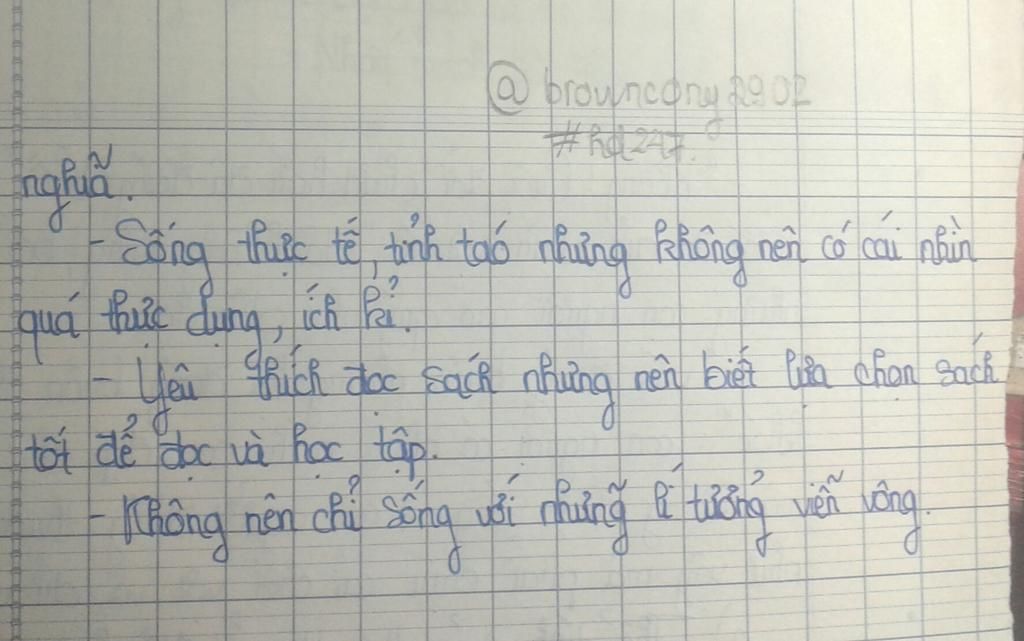 @ browncony2902
#hd247.
nghĩa.
- Sống thực tế, tỉnh táo nhưng không nên có cái nhìn
quá thực dụng, ích kỉ.
- Yêu thích đọc sách nhưng nên biết lựa chọn sách
tốt để đọc và học tập.
- Không nên chỉ sống với những lí tưởng viễn vông.